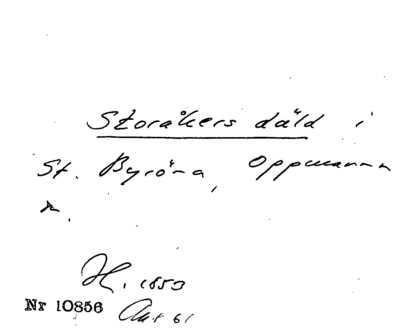 Storåkers däld i
St. Byröna, Oppmanna
H. 1853
Nr 10856